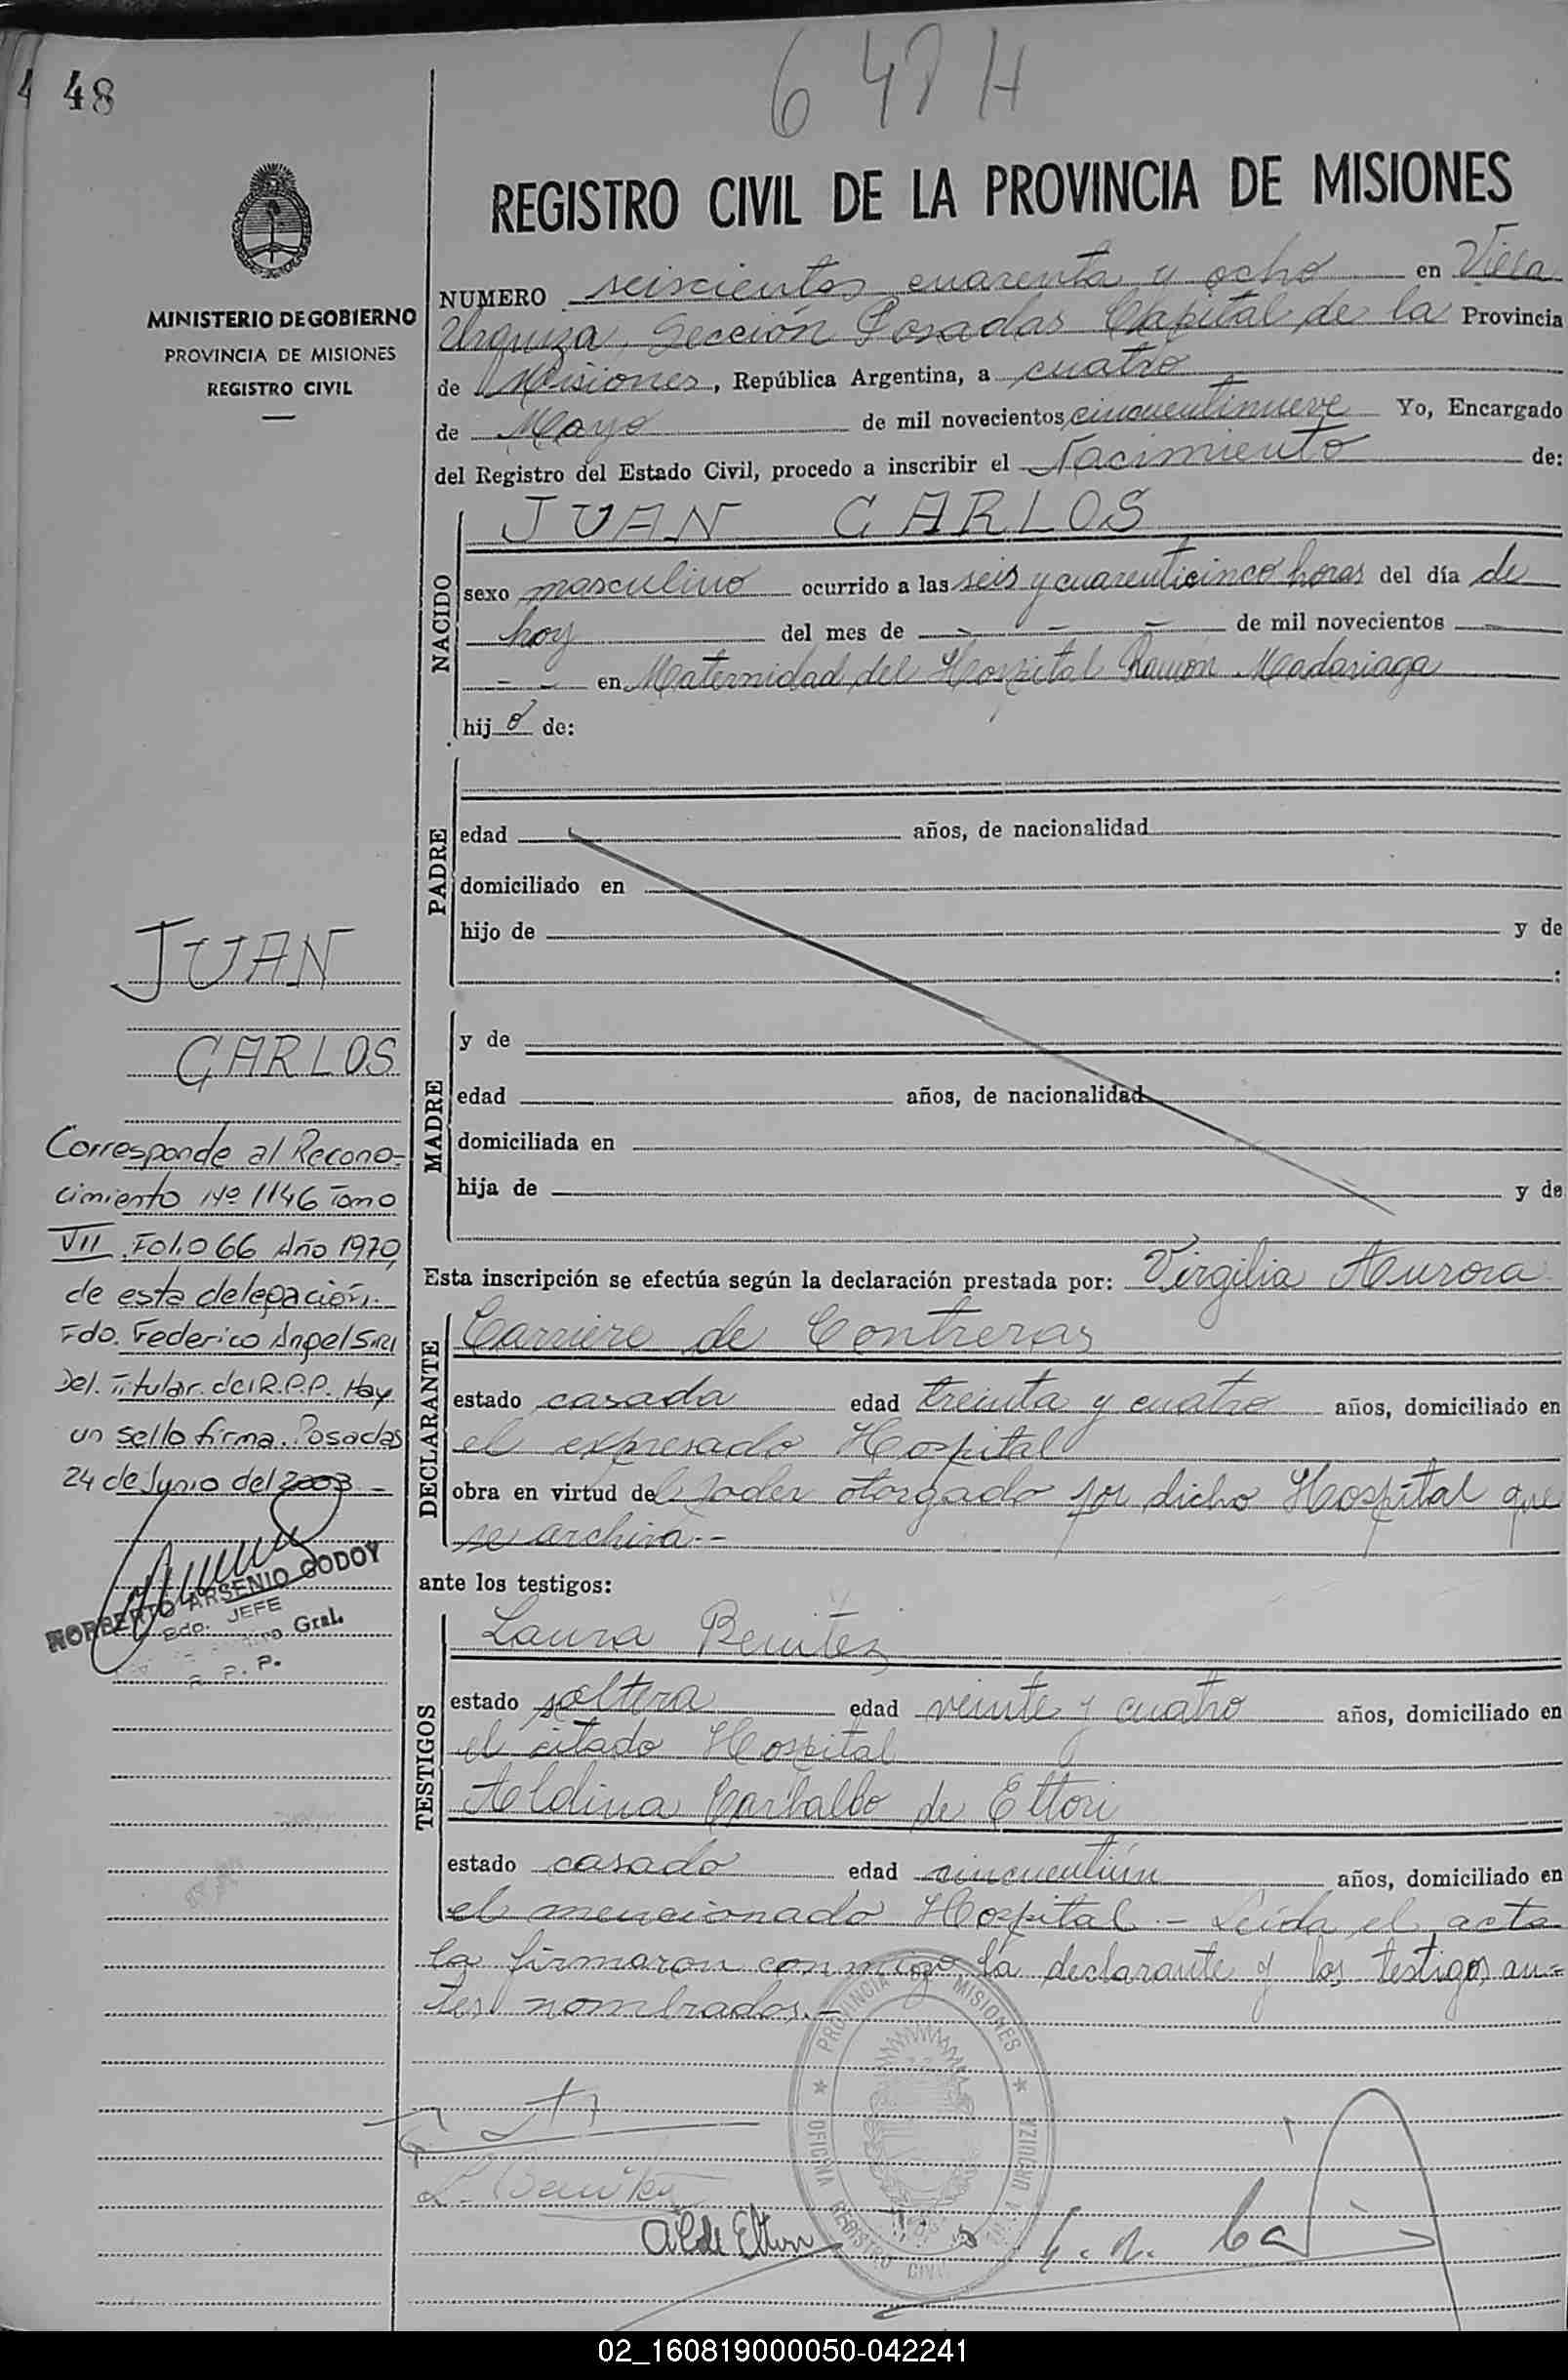 648 H
48
REGISTRO CIVIL DE LA PROVINCIA DE MISIONES
MINISTERIO DE GOBIERNO
PROVINCIA DE MISIONES
REGISTRO CIVIL
NUMERO seiscientos cuarenta y ocho en Villa
Urquiza, Sección Posadas Capital de la Provincia
de Misiones, República Argentina, a cuatro
de Mayo de mil novecientos cincuentinueve Yo, Encargado
del Registro del Estado Civil, procedo a inscribir el Nacimiento de:
NACIDO
JUAN CARLOS
sexo masculino ocurrido a las seis y cuarenticinco horas del día de
hoy del mes de - - - de mil novecientos -
- - en Maternidad del Hospital Ramón Madariaga
hijo de:
PADRE
edad años, de nacionalidad
domiciliado en
hijo de y de
:
MADRE
y de
edad años, de nacionalidad
domiciliada en
hija de y de
JUAN
CARLOS
Corresponde al Recono-
cimiento Nº 1146 Tomo
VII Folio 66 Año 1970,
de esta delegación.
Fdo. Federico Angel
Del. Titular del R.P.P. Hay
un sello firma. Posadas
24 de Junio del 2003 -
NORBERTO ARSENIO GODOY
JEFE
Gral.
R. P. P.
Esta inscripción se efectúa según la declaración prestada por: Virgilia Aurora
DECLARANTE
Carriere de Contreras
estado casada edad treinta y cuatro años, domiciliado en
el expresado Hospital
obra en virtud del poder otorgado por dicho Hospital que
se archiva.-
ante los testigos:
TESTIGOS
Laura Benitez
estado soltera edad veinte y cuatro años, domiciliado en
el citado Hospital
Aldina Carballo de Ettori
estado casado edad cincuentiún años, domiciliado en
el mencionado Hospital.- Leída el acta
la firmaron conmigo la declarante y los testigos an=
tes nombrados.-
PROVINCIA DE MISIONES
OFICINA REGISTRO CIVIL VILLA URQUIZA
L. Benitez
02_160819000050-042241